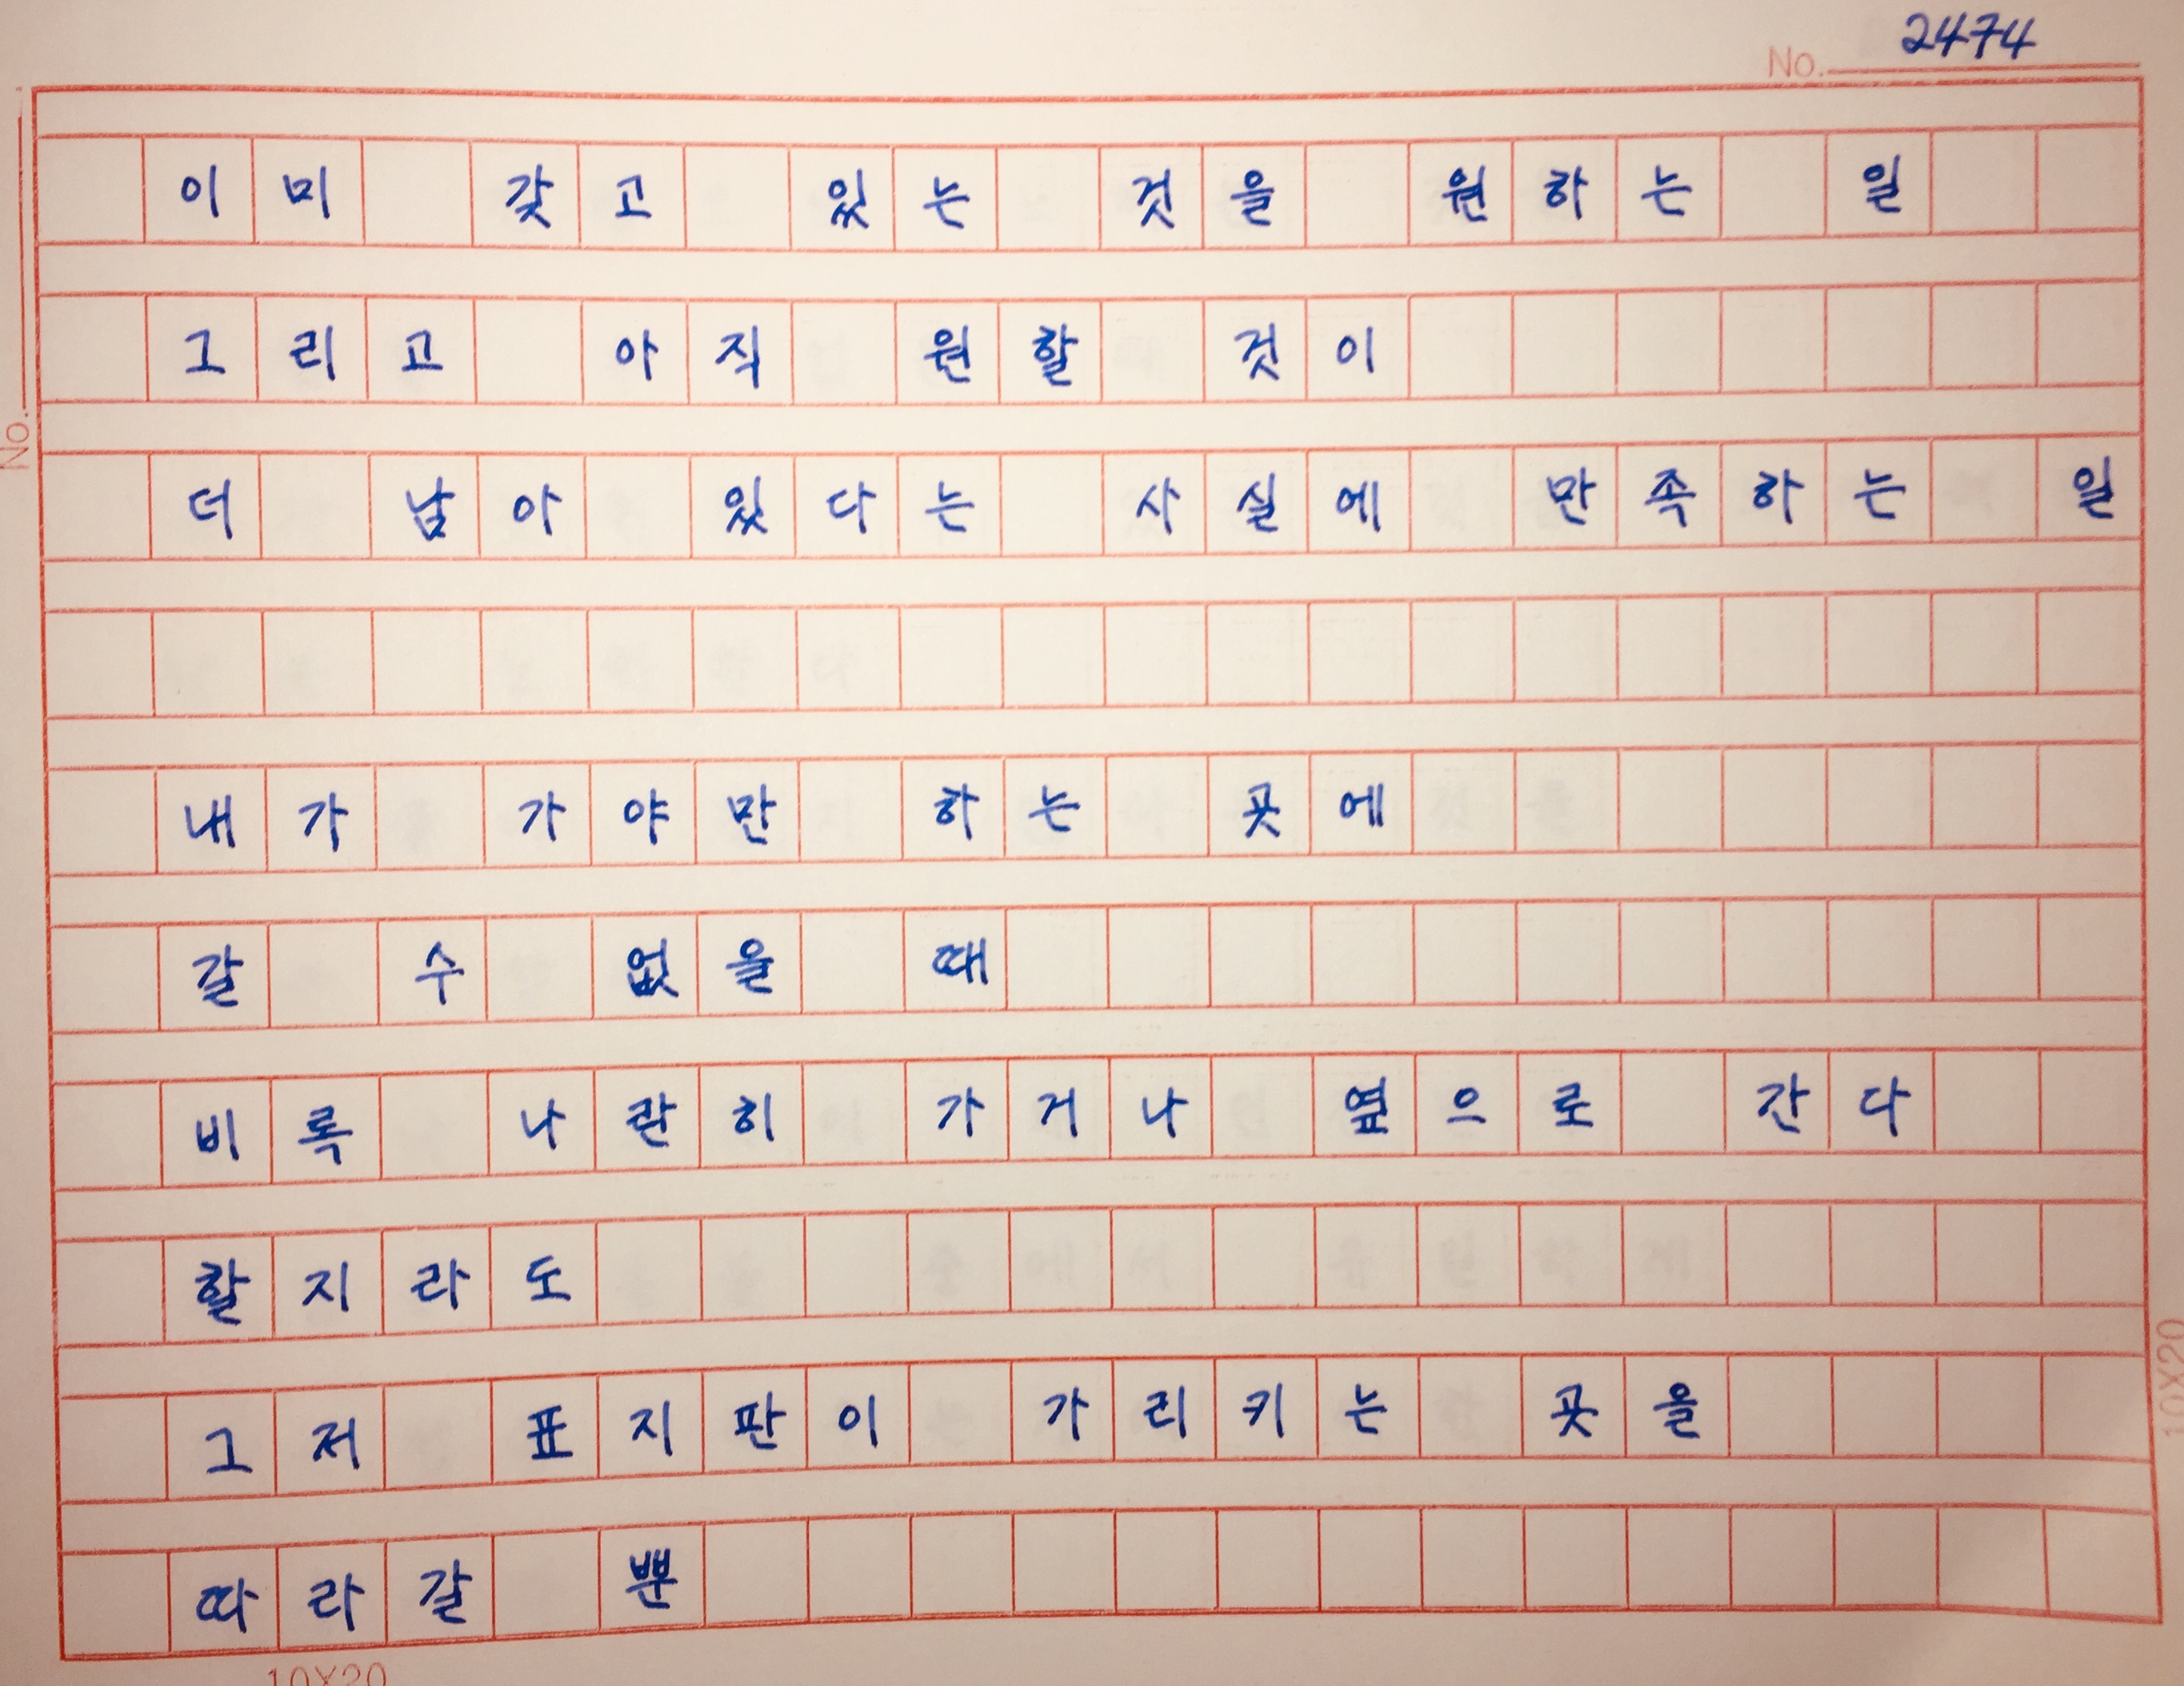 No. 2474
이미 갖고 있는 것을 원하는 일
그리고 아직 원할 것이
더 남아 있다는 사실에 만족하는 일
내가 가야만 하는 곳에
갈 수 없을 때
비록 나란히 가거나 옆으로 간다
할지라도
그저 표지판이 가리키는 곳을
따라갈 뿐
No.
10X20
10X20